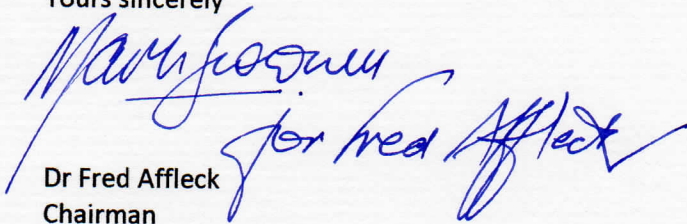 Yours sincerely
for Fred Affleck
Dr Fred Affleck
Chairman